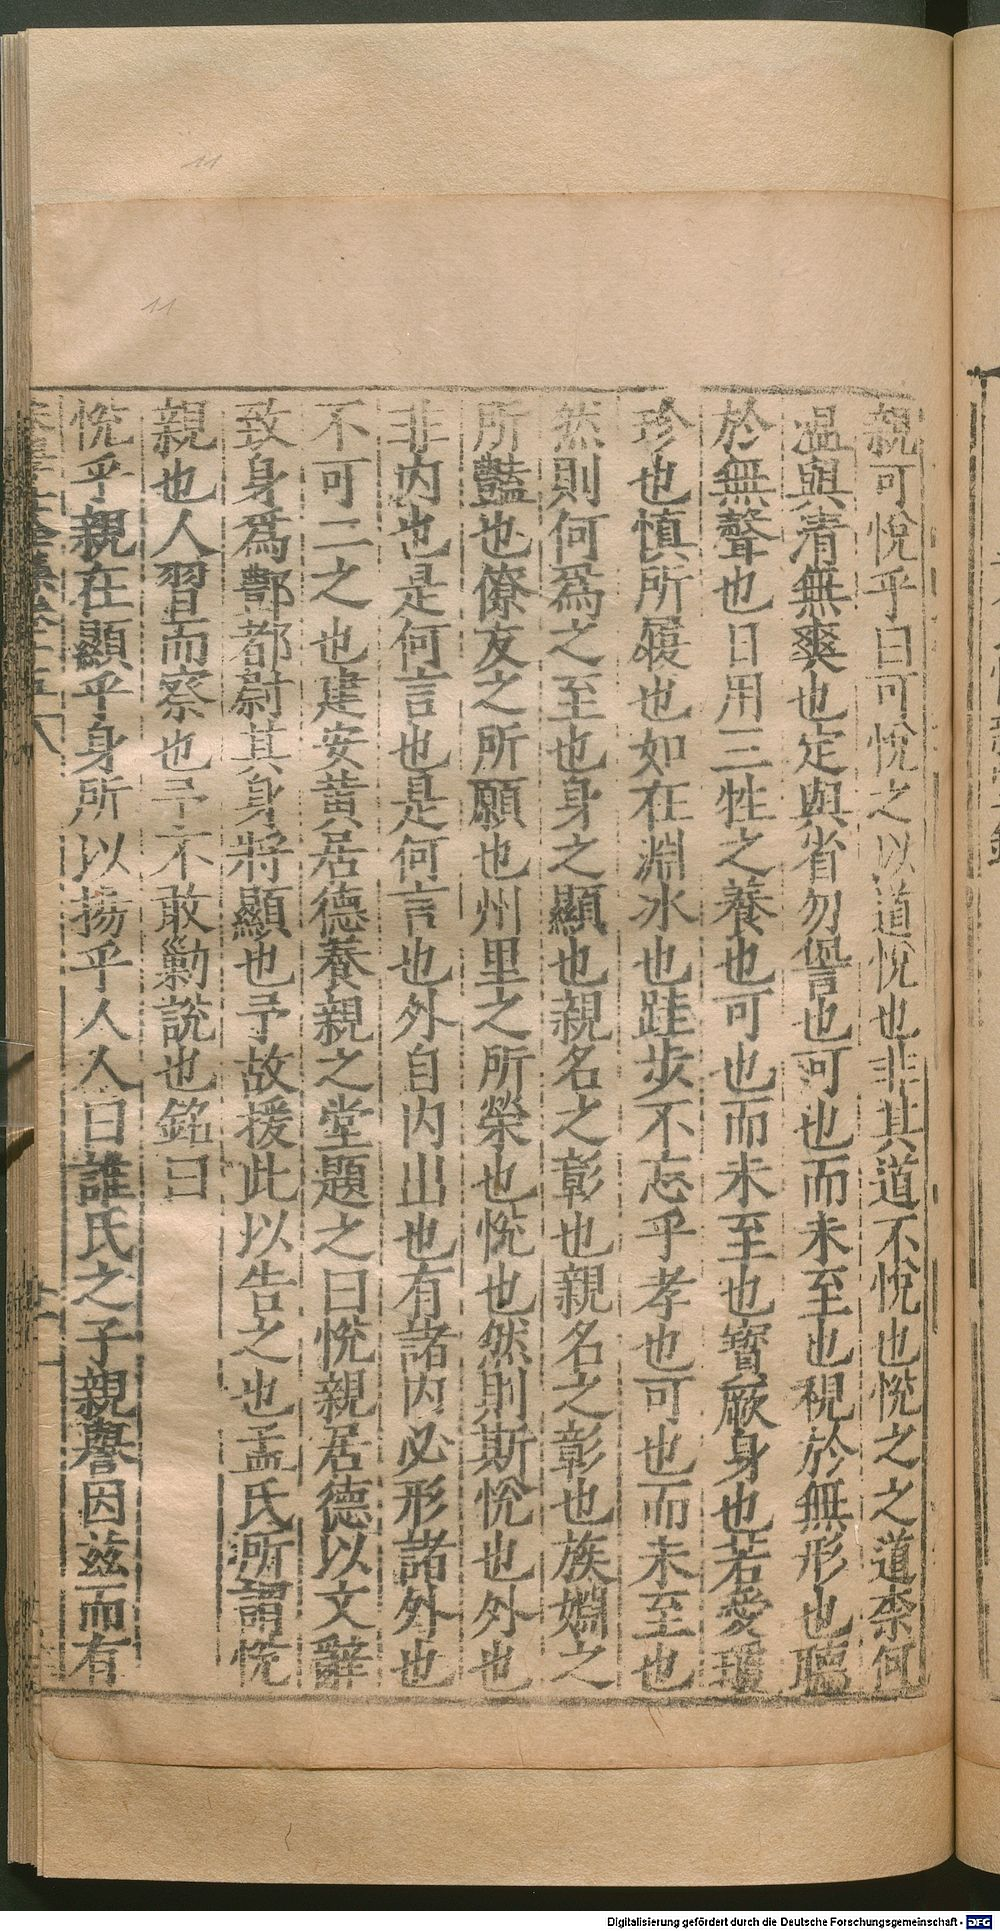 親可悅乎曰可悅之以道悅也非其道不悅也悅之之道柰何
溫與凊無爽也定與省勿諐也可也而未至也視於無形也聽
於無聲也日用三牲之養也可也而未至也寶厥身也若愛瓌
珍也慎所履也如在淵水也跬步不忘乎孝也可也而未至也
然則何爲之至也身之顯也親名之彰也親名之彰也族婣之
所豔也僚友之所願也州里之所榮也悅也然則斯悅也外也
非内也是何言也是何言也外自内出也有諸内必形諸外也
不可二之也建安黃居德養親之堂題之曰悅親居德以文辭
致身爲酆都尉其身將顯也予故援此以告之也孟氏所謂悅
親也人習而察也予不敢勦說也銘曰
悅乎親在顯乎身所以揚乎人人曰誰氏之子親譽因兹而有
11
11
Digitalisierung gefördert durch die Deutsche Forschungsgemeinschaft - DFG